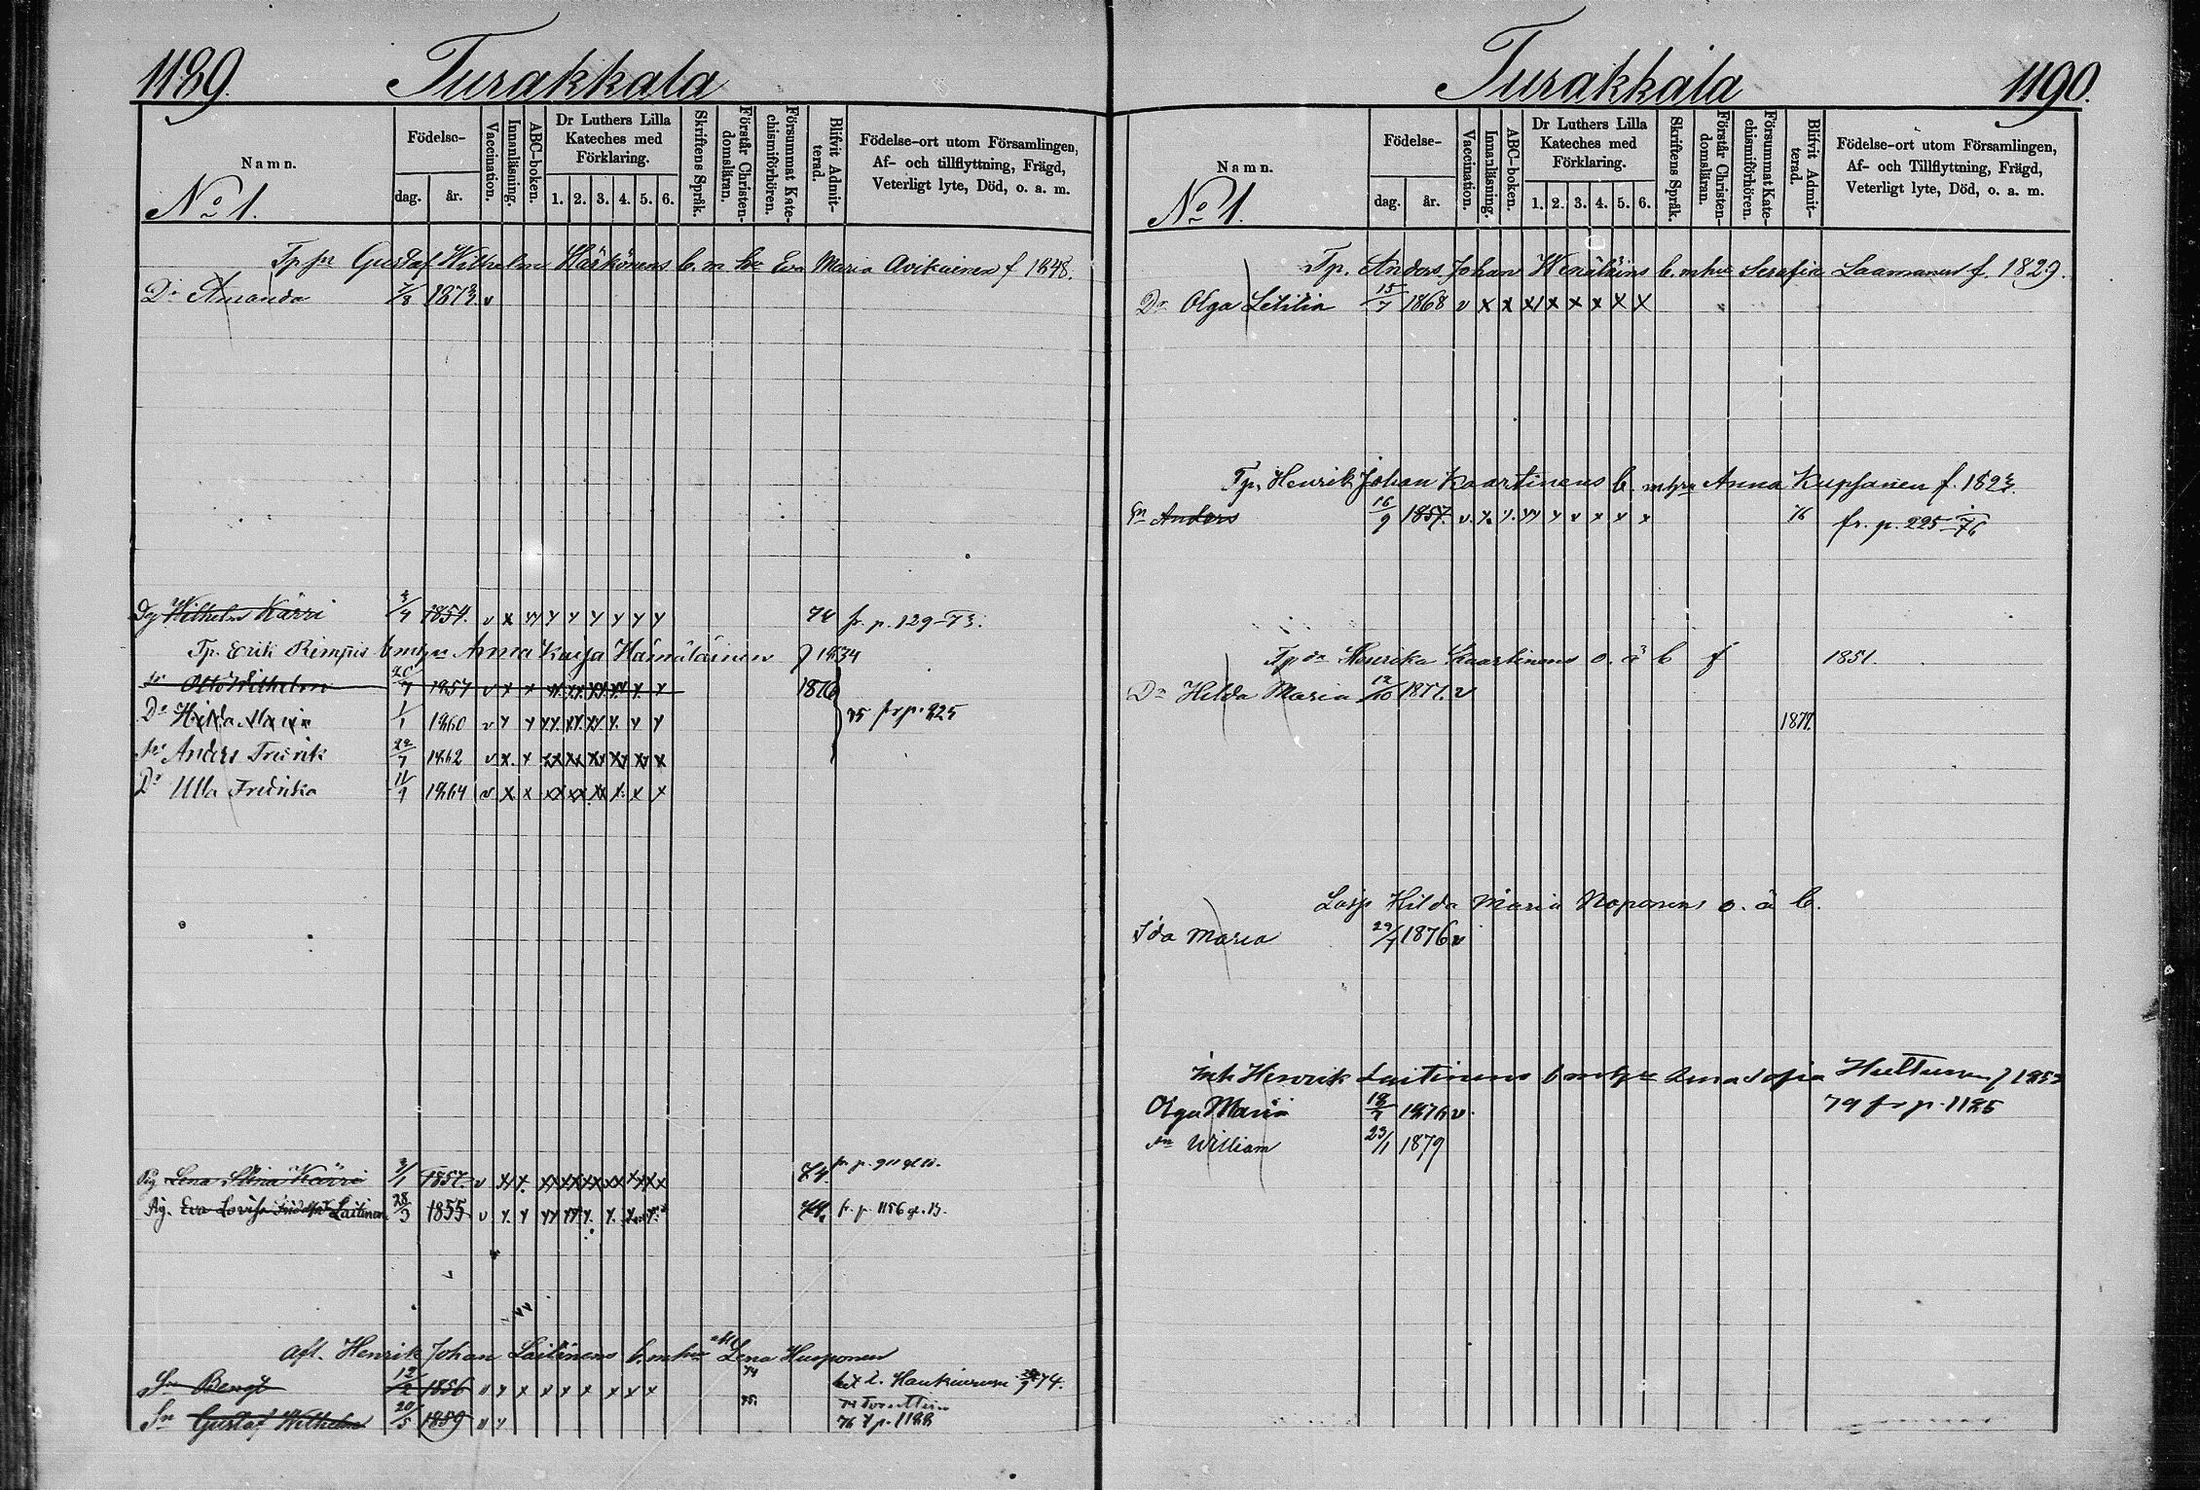 1189. Turakkala
Namn.
No 1.
Födelse-
dag. år.
Vaccination.
Innanläsning.
ABC-boken.
Dr Luthers Lilla Kateches med Förklaring.
1. 2. 3. 4. 5. 6.
Skriftens Språk.
Förstår Christendomsläran.
Försummat Katechismiförhören.
Blifvit Admitterad.
Födelse-ort utom Församlingen,
Af- och tillflyttning, Frägd,
Veterligt lyte, Död, o. a. m.
Gustaf Wilhelm Härkönens b. m hu Eva Maria Avikainen f 1848.
Dr Amanda 1873 v
Dg Wilhelm Kärri 1854. v x xy y y y y y y 74 fr. p. 129-73.
Tp. Erik Rimpis b mhu Anna Kaisa Hämäläinen f 1834
Sn Otto Wilhelm 1857 v x x 1876
Dr Hilda Maria 1/1 1860 75 fr p. 825
Sn Anders Fredrik 22/7 1862
Dr Ulla Fredrika 11/9 1864
Pig Lena Stina Kärri 3/1 1857. v 74.
Pig. Eva Lovisa Laitinen 28/3 1855 v 74. fr. p. 1156 gl. B.
Afl. Henrik Johan Laitinens b. m hu Lena Husponen
Sn Bengt 12/2 1856 v x x x x x x x x 74 Haukivuori 74.
Sn Gustaf Wilhelm 20/5 1859 v y 75. 76 p. 1188
Turakkala 1190.
Namn.
No 1.
Födelse-
dag. år.
Vaccination.
Innanläsning.
ABC-boken.
Dr Luthers Lilla Kateches med Förklaring.
1. 2. 3. 4. 5. 6.
Skriftens Språk.
Förstår Christendomsläran.
Försummat Katechismiförhören.
Blifvit Admitterad.
Födelse-ort utom Församlingen,
Af- och Tillflyttning, Frägd,
Veterligt lyte, Död, o. a. m.
Tp. Anders Johan Wenäläins b. m hu Serafia Laamanen f. 1829.
Dr Olga Letitia 15/7 1868 v x x x x x x x x
Tp. Henrik Johan Kaartinens b. m hru Anna Kupsanen f.
Sn Anders 16/9 1857. v. 76 fr. p. 225-76
Tp dr Henrika Kaartinens o. ä b f 1851.
Dr Hilda Maria 12/10 1877. v
1877.
Hilda Maria Noponens o. ä b.
Ida Maria 29/7 1876 v
Inh Henrik Laitinens b m hu Anna Sofia Hulttunen f
Olga Maria 18/7 1876 v. 79 fr p. 1185
Sn William 23/1 1879